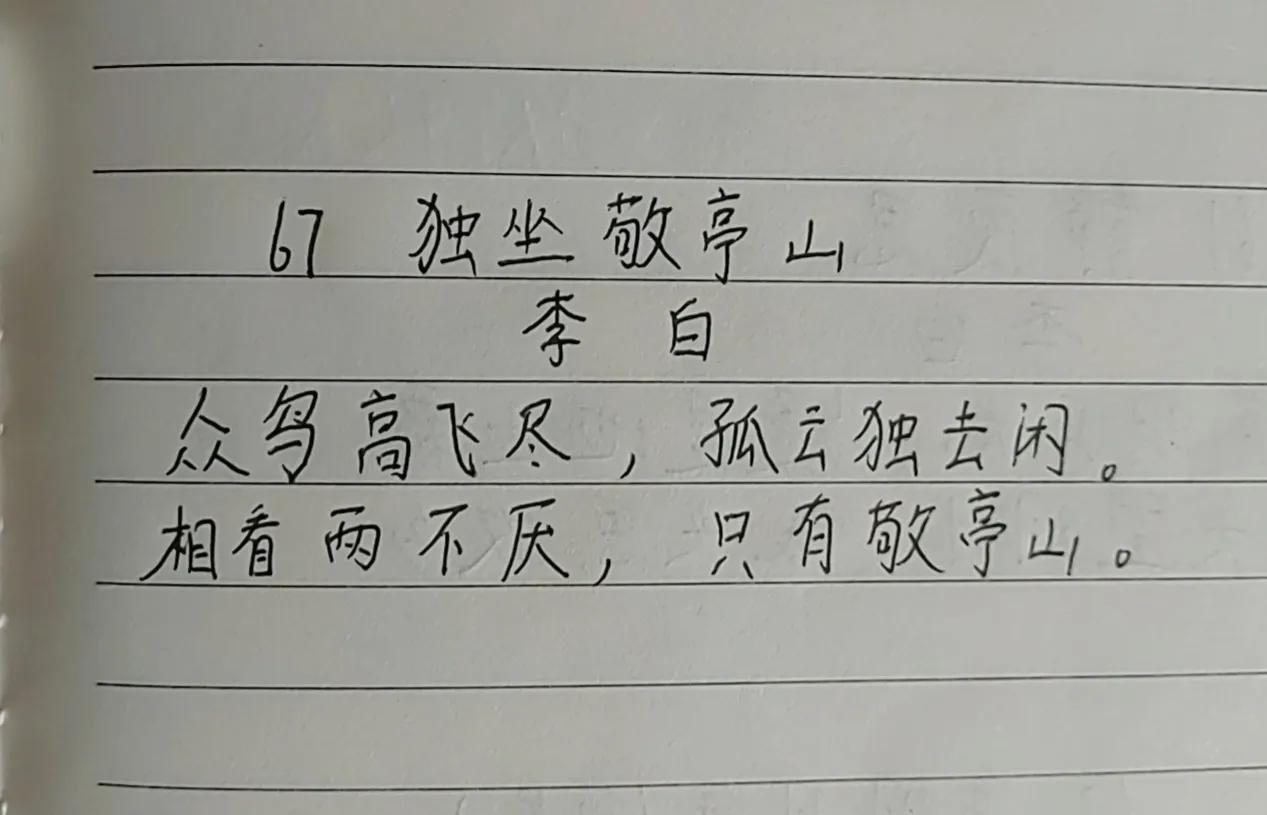 67 独坐敬亭山
李白
众鸟高飞尽，孤云独去闲。
相看两不厌，只有敬亭山。